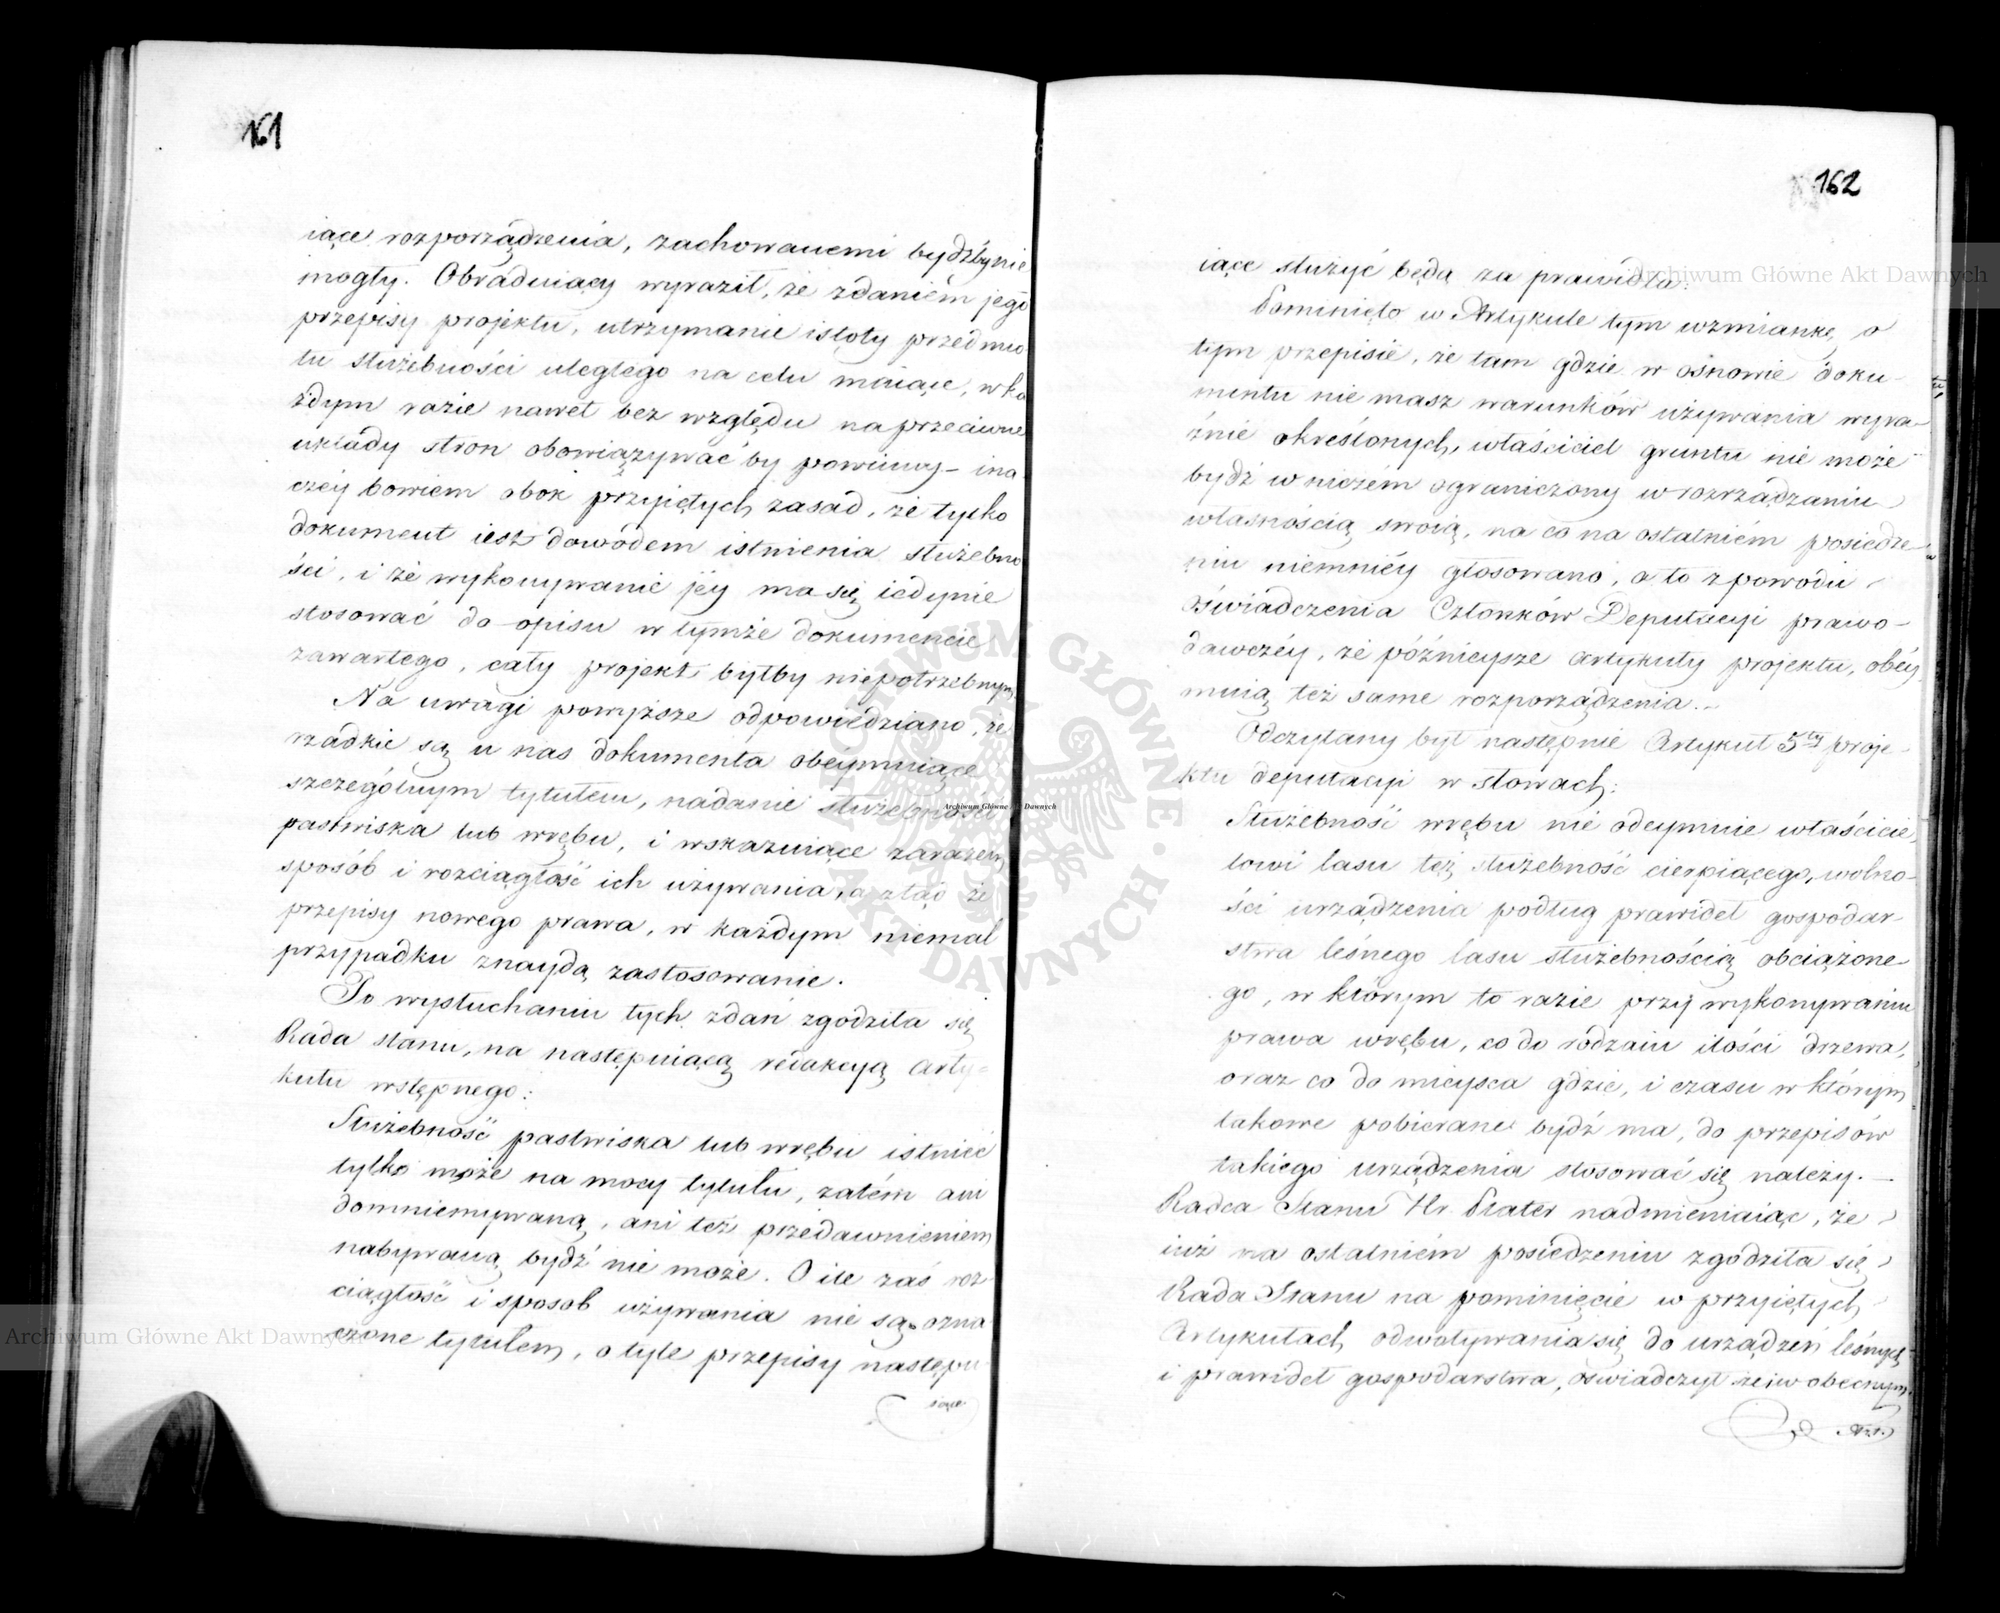 161
iące rozporządzenia, zachowanemi bydźby nie
mogły. Obraduiący wyraził, że zdaniem jego
przepisy projektu, utrzymanie istoty przedmio
tu służebności uległego na celu maiące, w ka
żdym razie nawet bez względu na przeciwne
układy stron obowiązywać by powinny – ina
czéy bowiem obok przyiętych zasad, że tylko
dokument iest dowodem istnienia służebno
ści, i że wykonywanie jéy ma się iedynie
stosować do opisu w tymże dokumencie
zawartego, cały projekt byłby niepotrzebnym
Na uwagi powyższe odpowiedziano, że
rzadkie są u nas dokumenta obeymuiące
szczególnym tytułem, nadanie służebności
pastwiska lub wrębu, i wskazuiące zarazem
sposób i rozciągłość ich używania, a ztąd że
przepisy nowego prawa, w każdym niemal
przypadku znaydą zastosowanie.
Po wysłuchaniu tych zdań zgodziła się
Rada stanu, na następuiącą redakcyą arty-
kułu wstępnego:
Służebność pastwiska lub wrębu istnieć
tylko może na mocy tytułu, zatém ani
domniemywaną, ani też przedawnieniem
nabywaną bydź nie może. O ile zaś roz-
ciągłość i sposob używania nie są ozna
czone tytułem, o tyle przepisy następu
iące
162
iące służyć będą za prawidła.
Pominięto w Artykule tym wzmiankę o
tym przepisie, że tam gdzie w osnowie doku-
mentu nie masz warunków używania wyra-
źnie określonych, właściciel gruntu nie może
bydź w niczém ograniczony w rozrządzaniu
własnością swoią, na co na ostatniém posiedze-
niu niemniéy głosowano, a to z powodu
oświadczenia Członków Deputacyi prawo-
dawczéy, że późnieysze artykuły projektu, obéy
muią też same rozporządzenia.
Odczytany był następnie Artykuł 5ty proje-
ktu deputacyi w słowach:
Służebność wrębu nie odeymuie właścicie,
lowi lasu téż służebność cierpiącego, wolno-
ści urządzenia podług prawideł gospodar-
stwa leśnego lasu służebnością obciążone-
go, w którym to razie przy wykonywaniu
prawa wrębu, co do rodzaiu ilości drzewa,
oraz co do mieysca gdzie, i czasu w którym
takowe pobierane bydź ma, do przepisów
takiego urządzenia stosować się należy. –
Radca Stanu Hr. Plater nadmieniaiąc, że
iuż na ostatniém posiedzeniu zgodziła się
Rada Stanu na pominięcie w przyiętych
Artykułach odwoływania się do urządzeń leśnych
i prawideł gospodarstwa, oświadczył że i w obecnym
Art.
Archiwum Główne Akt Dawnych
Archiwum Główne Akt Dawnych
Archiwum Główne Akt Dawnych
ARCHIWUM GŁÓWNE · AKT DAWNYCH ·